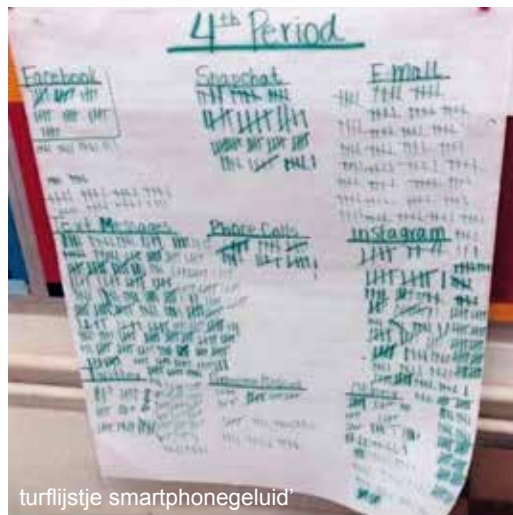 4th Period
Facebook
Snapchat
E-Mail
Text Messages
Phone Calls
Instagram
turflijstje smartphonegeluid'